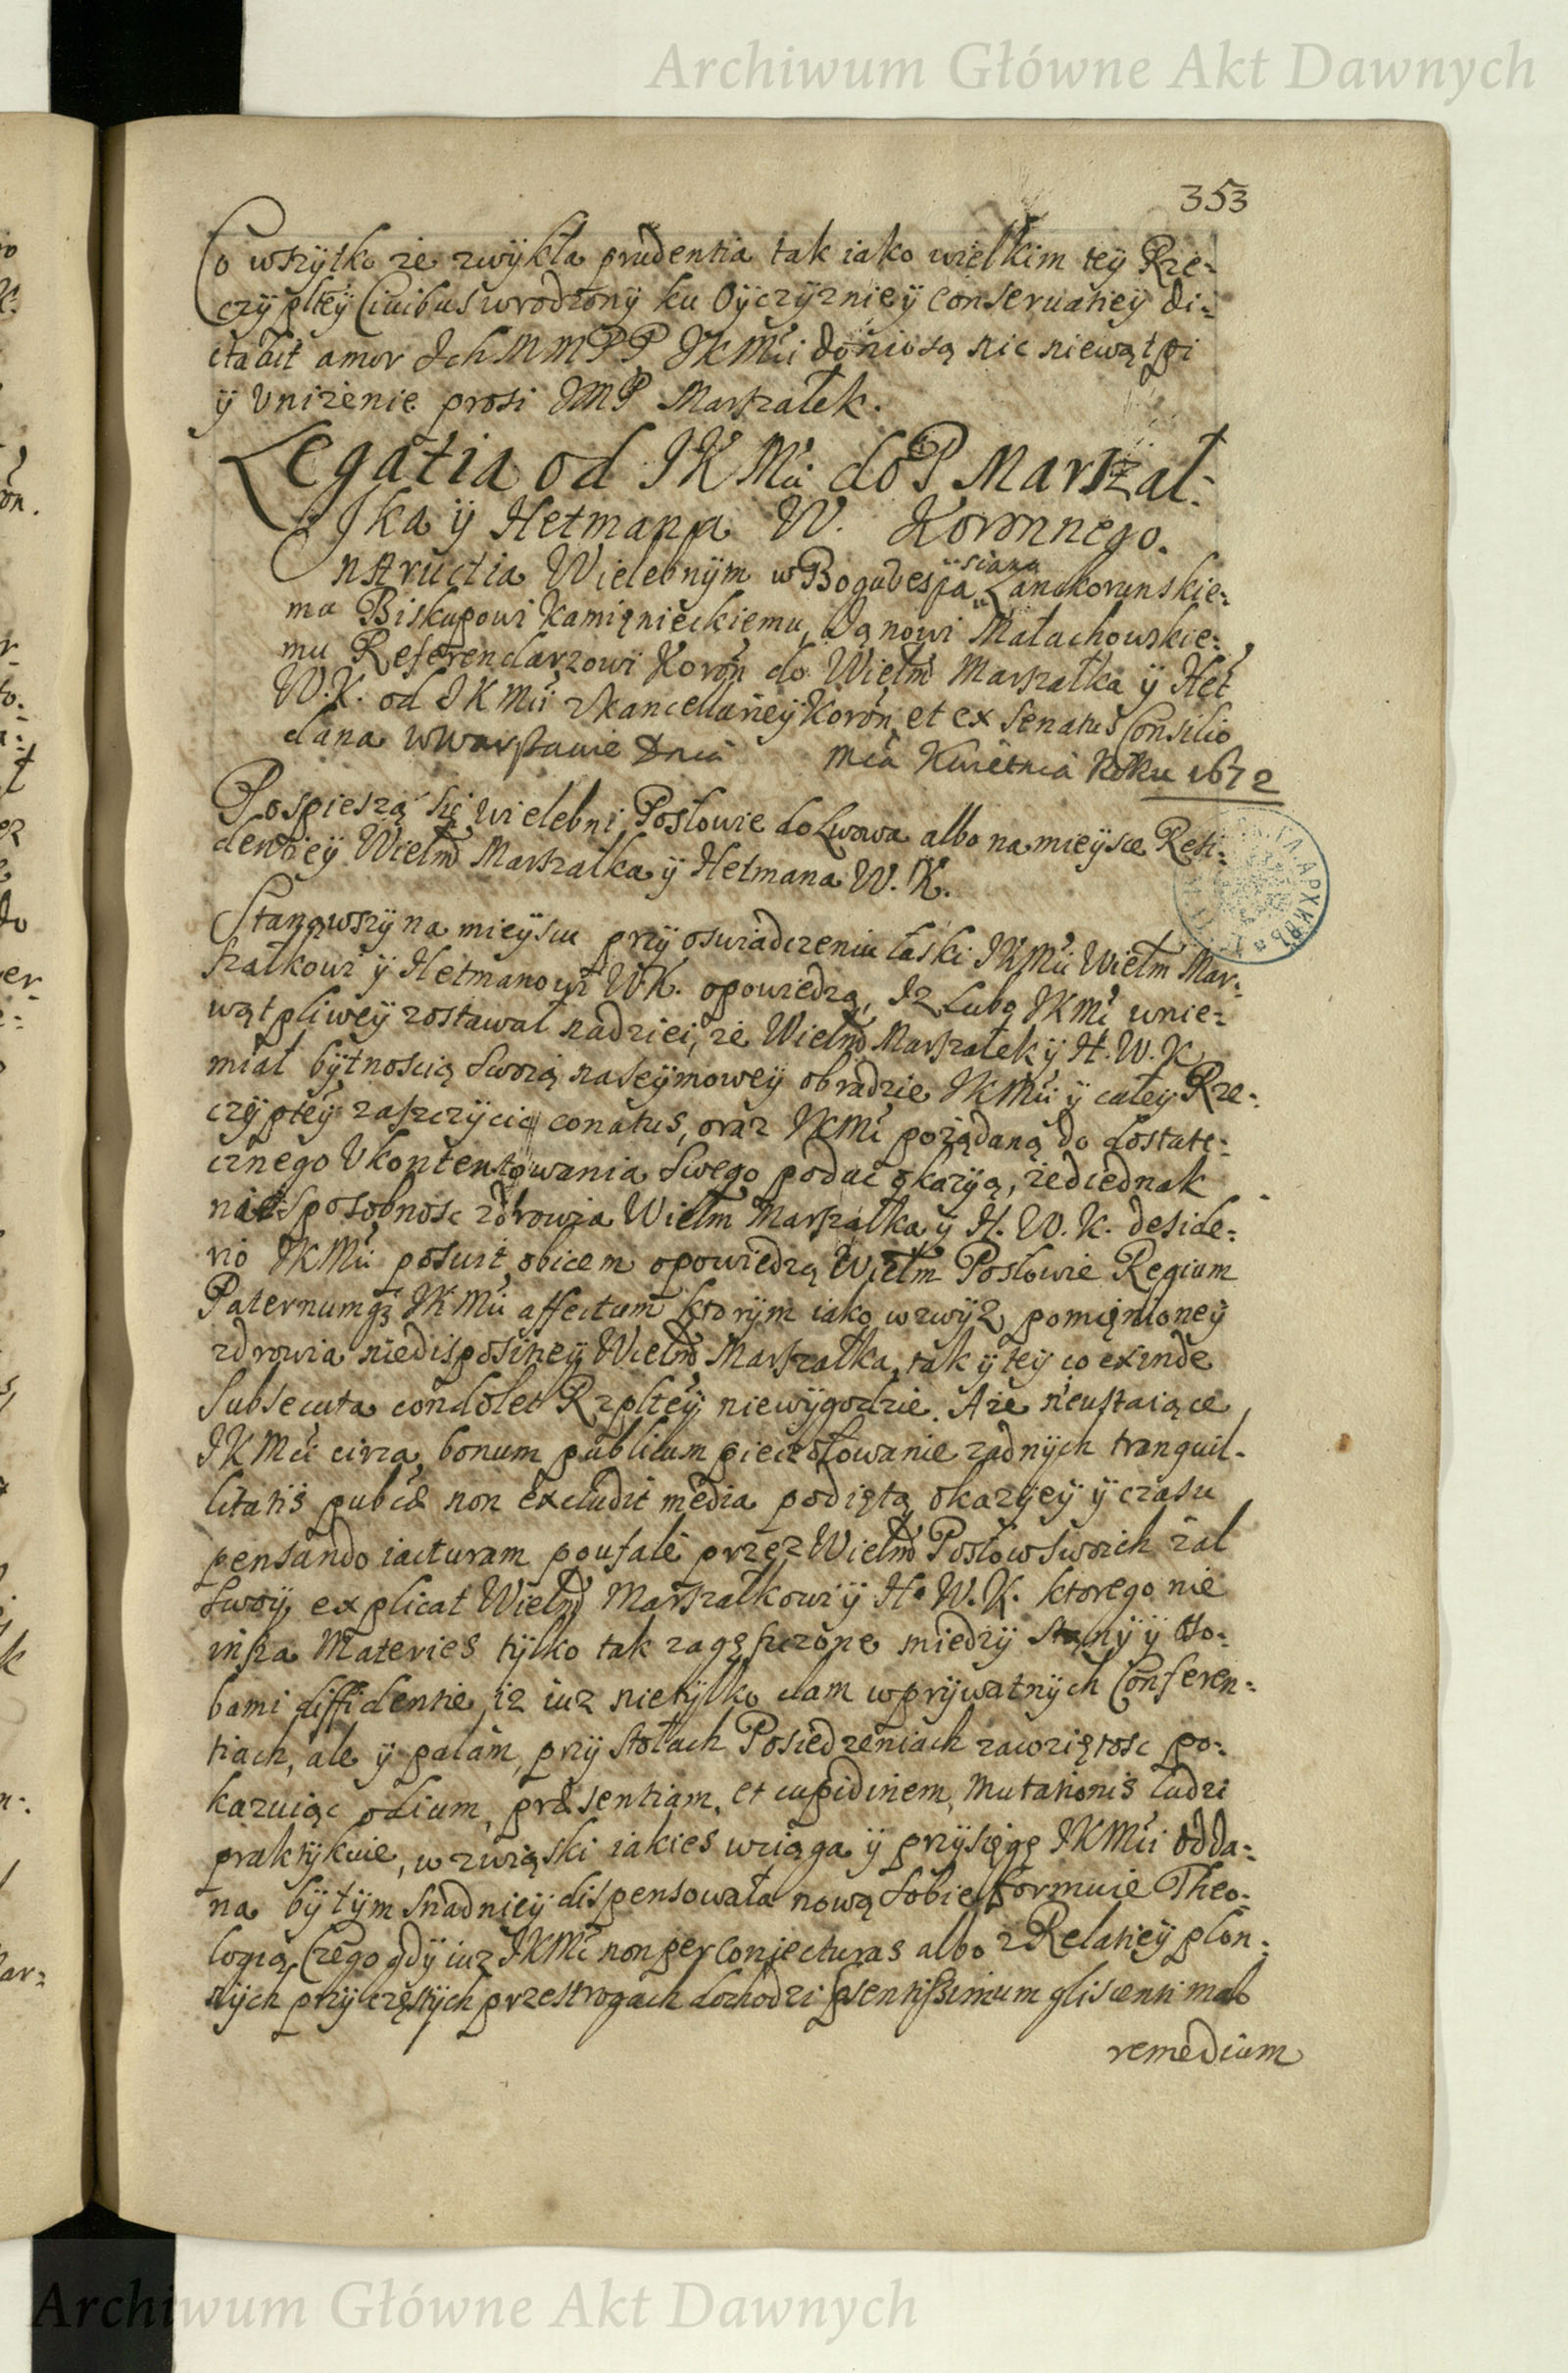 Archiwum Główne Akt Dawnych
353
Co wszÿtko że zwÿkła prudentia tak iako wielkim teÿ Rze-
czÿ plteÿ Civibus wrodzonÿ ku Oÿczÿznieÿ conservatieÿ di-
ctabit amor Ich MMPP JKMci doniosą nic niewątpi
ÿ Vniżenie prosi JMP Marszałek.
Legatia od JKMci do P Marszał-
ka ÿ Hetmana W. Koronnego.
Instructia Wielebnÿm w Bogu Wespa sianu Lanckorunskie-
mu Biskupowi Kamięnieckiemu, Janowi Małachowskie-
mu Referendarzowi Koron do Wielm Marszałka ÿ Het
W.K. od JKMci z Kancellarieÿ Koron, et ex Senatus Consilio
dana w Warszawie Dnia Mca Kwietnia Roku 1672
Pospieszą się wielebni Posłowie do Lwowa albo na mieÿsce Resi-
dentieÿ Wielm Marszałka ÿ Hetmana W.K.
Stanąwszÿ na mieÿscu przÿ oswiadczeniu łaski JKMci Wielm Mar-
szałkowi ÿ Hetmanowi W.K. opowiedzą, Iz lubo JKMć w nie-
wątpliweÿ zostawał nadziei, że Wielm Marszałek ÿ H.W.K
miał bÿtnoscią swoią na seÿmoweÿ obradzie JKMci ÿ całeÿ Rze-
czÿpteÿ zaszczÿcić conatus, oraz JKMć pożądaną do dostate-
cznego Vkontentowania swego podać okazÿą, żed iednak
niesposobnosc zdrowia Wielm Marszałka ÿ H.W.K. deside-
rio JKMci posuit obicem opowiedzą Wielm Posłowie Regium
Paternumqz JKMci affectum ktorÿm iako w zwÿż pomięnioneÿ
zdrowia niedispositieÿ Wielm Marszałka, tak ÿ teÿ co exinde
subsecuta condolet Rzplteÿ niewÿgodzie. Aże nieustaiące
JKMci circa bonum publicum pieczołowanie żadnÿch tranquil-
litatis pubcæ non excludit media podiętą okazÿeÿ ÿ czasu
pensando iacturam poufale przez Wielm Posłow swoich żal
swoÿ explicat Wielm Marszałkowi ÿ H.W.K. ktorego nie
insza Materies tÿlko tak zagęszczone miedzÿ Stanÿ ÿ Oso-
bami diffidentie, iz iuz nietÿlko clam w prÿwatnÿch Conferen-
tiach, ale ÿ palam, przÿ stołach Posiedzeniach zawziętosc po-
kazuiąc odium, præsentiam, et cupidinem, mutationis ludzi
praktÿkuie, w zwiąski iakies wciąga ÿ przÿsięgę JKMci odda-
na bÿ tÿm snadnieÿ dispensowała nową sobie formuie Theo-
logią Czego gdÿ iuz JKMć non per coniecturas albo z Relatieÿ płon-
nÿch przÿ częstÿch przestrogach dochodzi psentissimum gliscenti malo
remedium
Archiwum Główne Akt Dawnych